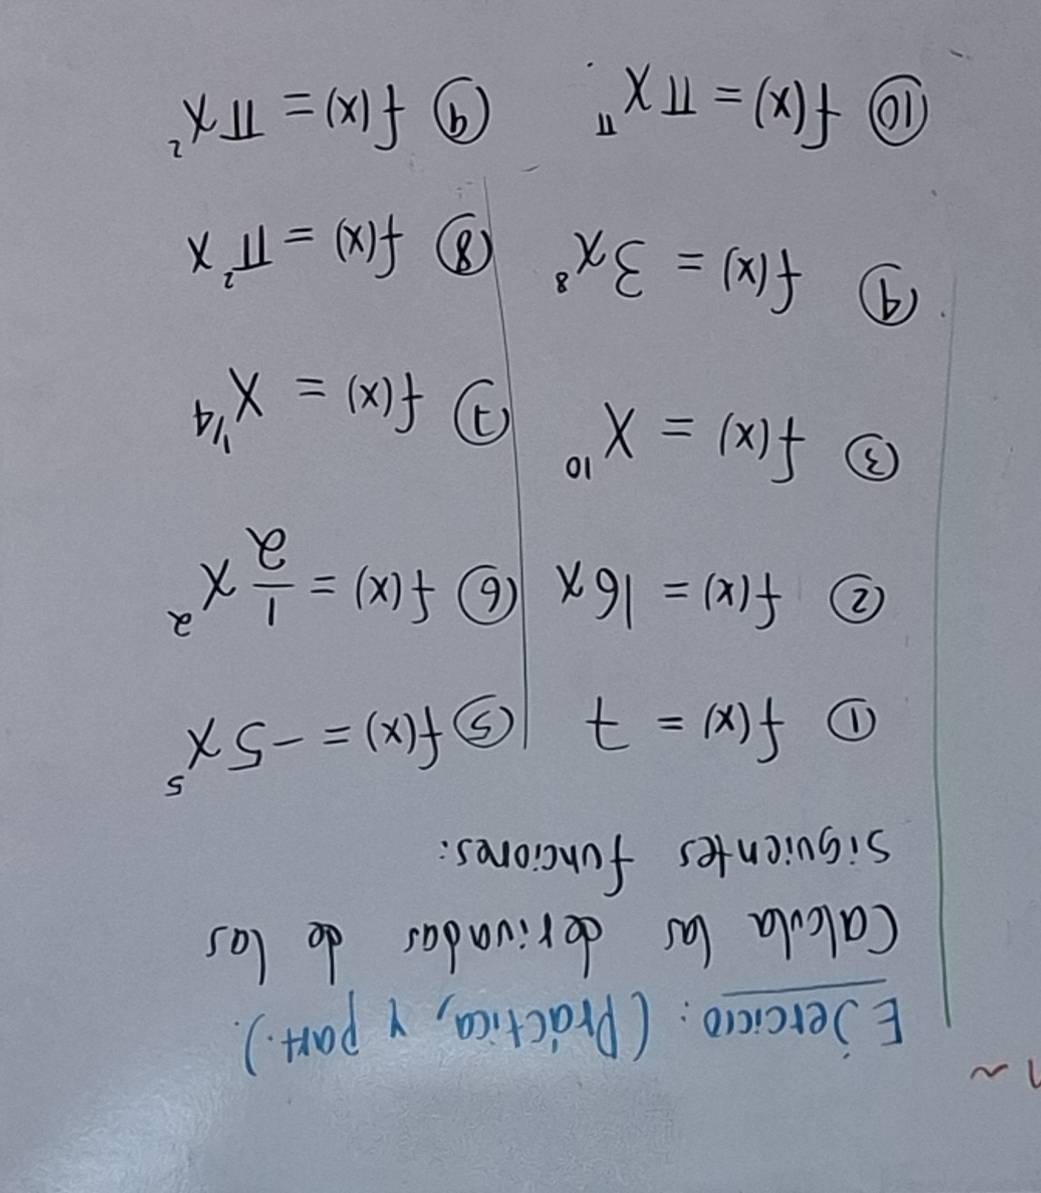 Ejercicio: (Práctica, y part.).
Calcula las derivadas de las
siguientes funciones:
① f(x) = 7
② f(x) = 16x
③ f(x) = x¹⁰
④ f(x) = 3x⁸
⑩ f(x) = πx^π.
⑤ f(x) = -5x⁵
⑥ f(x) = 1/2 x²
⑦ f(x) = x^1/4
⑧ f(x) = π²x
⑨ f(x) = πx²